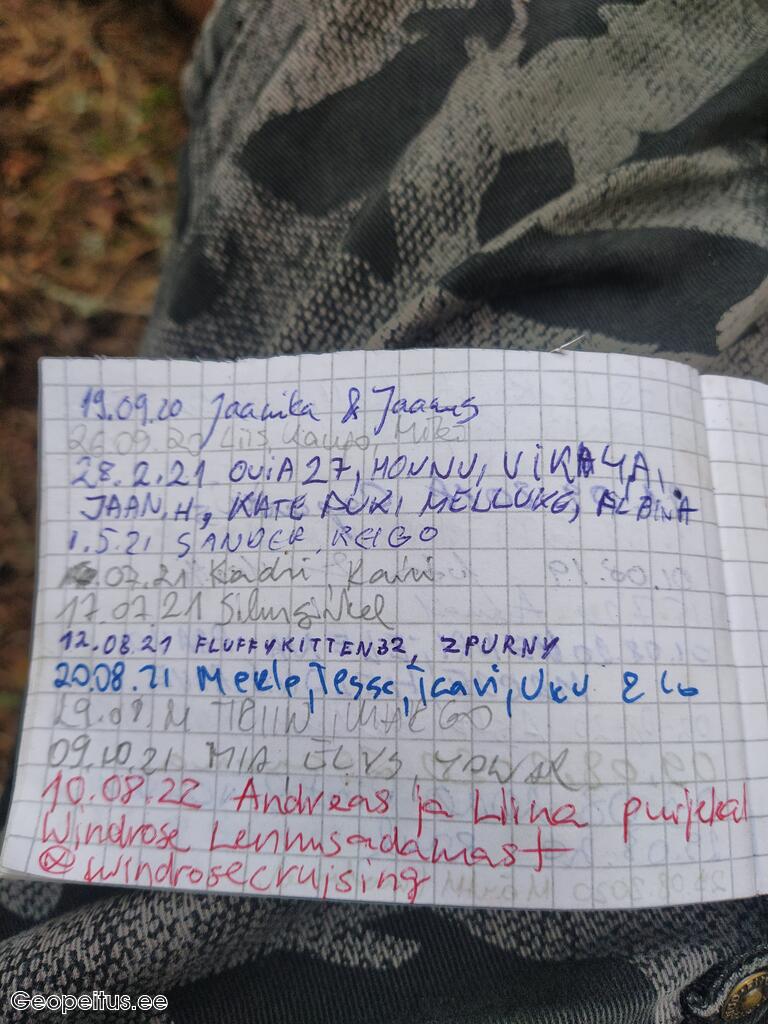 19.09.20 Jaanika & Jaanus
26.09.20 Liis,
28.2.21 OVIA27, MONNU, VIKAYA,
JAAN.H, KATE MELLUKE, ALBINA
1.5.21 SANDER, REIGO
.07.21 Kadri, Kairi
17.07.21
12.08.21 FLUFFYKITTEN32, ZPURNY
20.08.21 Merle, Tesse, Uku & Co
29.08.21 TRIIN, MARGO
09.10.21 MIA ELVS
10.08.22 Andreas ja Liina purjekal
Windrose Lennusadamast
windrosecruising
Geopeitus.ee